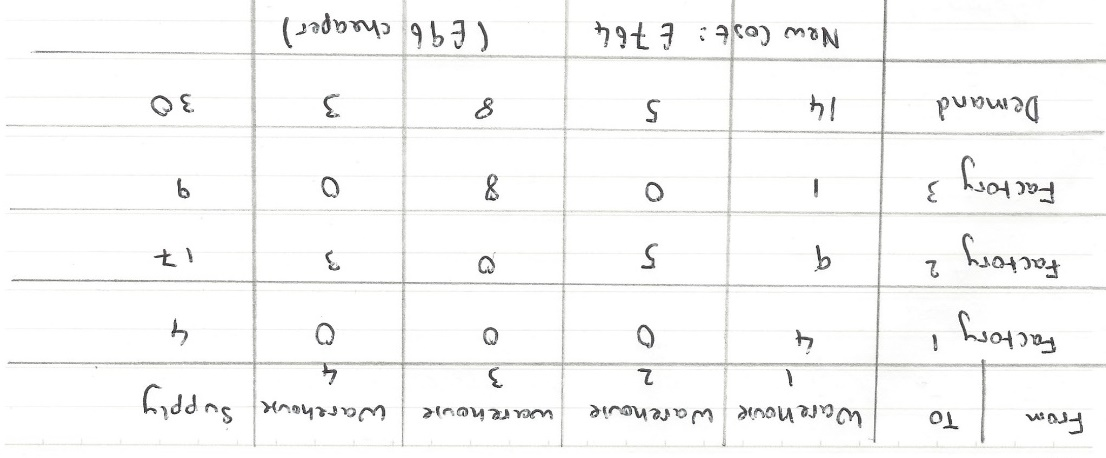 From To Warehouse 1 Warehouse 2 Warehouse 3 Warehouse 4 Supply
Factory 1 4 0 0 0 4
Factory 2 9 5 0 3 17
Factory 3 1 0 8 0 9
Demand 14 5 8 3 30
New Cost: £764 (£96 cheaper)